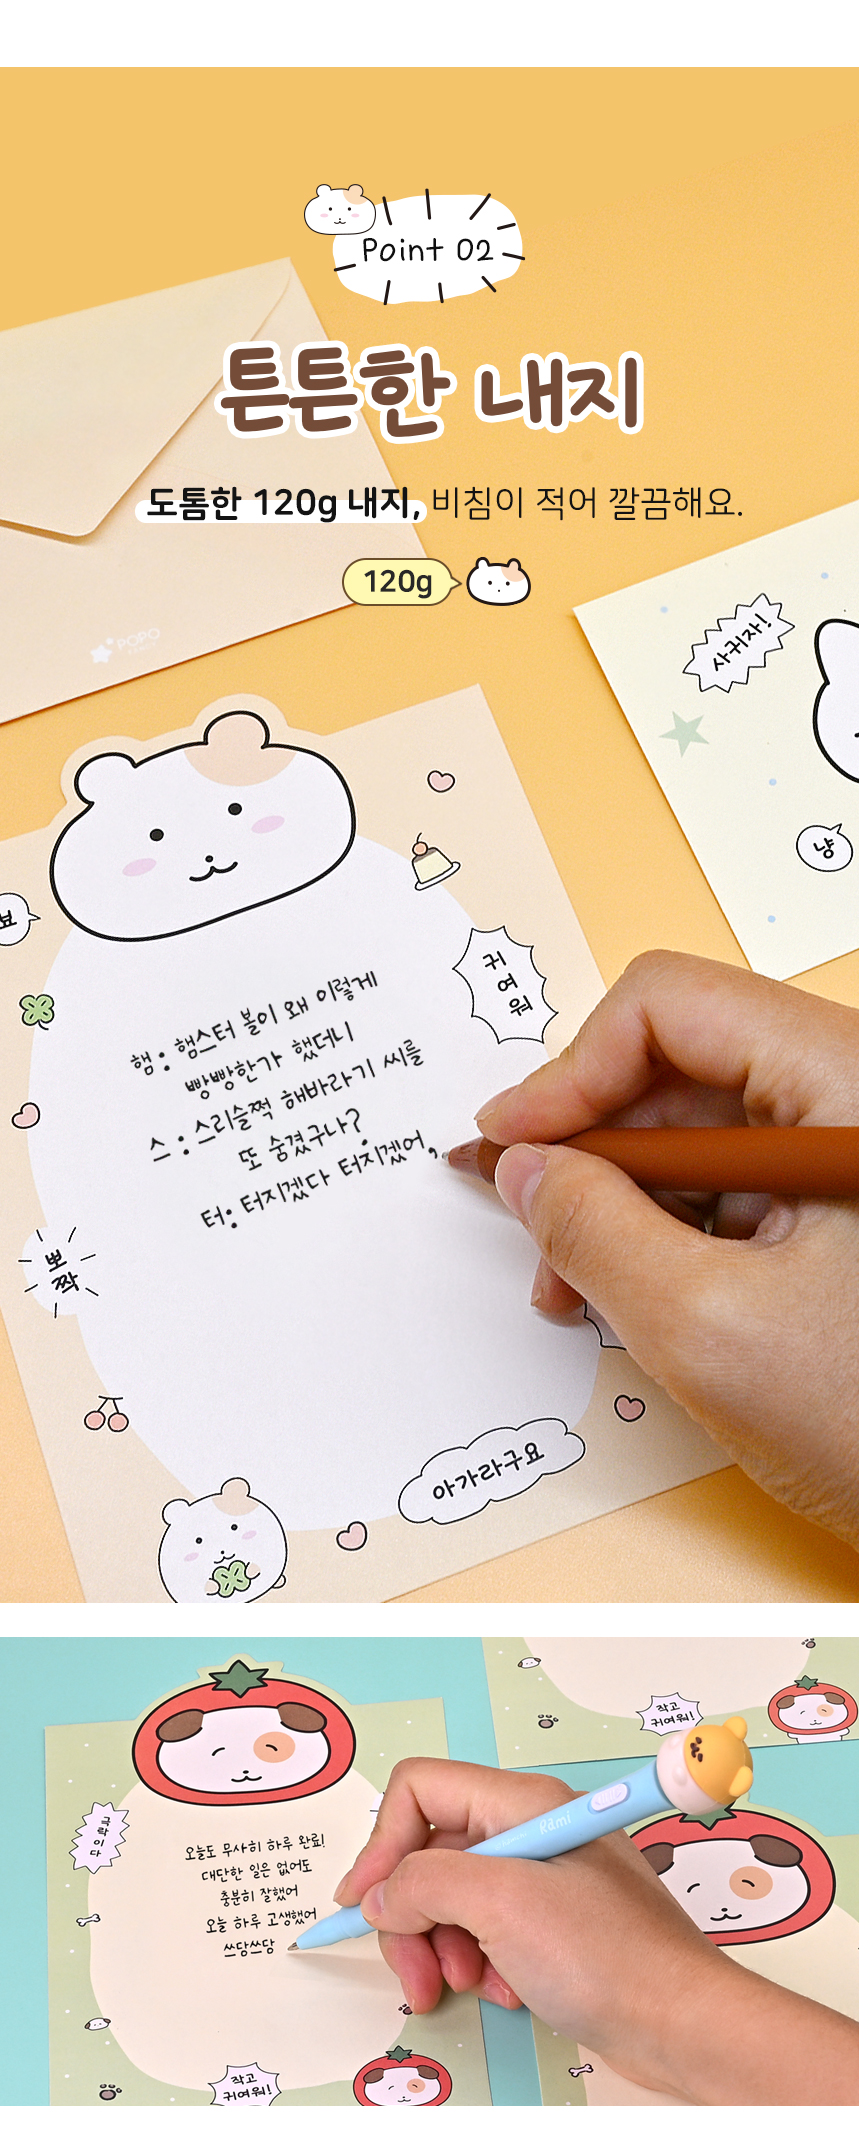 Point 02
튼튼한 내지
도톰한 120g 내지, 비침이 적어 깔끔해요.
120g
POPO
사귀자!
냥
뾰
귀
여
워
햄 : 햄스터 볼이 왜 이렇게
빵빵한가 했더니
스 : 스리슬쩍 해바라기 씨를
또 숨겼구나?
터 : 터지겠다 터지겠어,
뽀
짝
아가라구요
작고
귀여워!
극
락
이
다
Rami
오늘도 무사히 하루 완료!
대단한 일은 없어도
충분히 잘했어
오늘 하루 고생했어
쓰담쓰담
작고
귀여워!